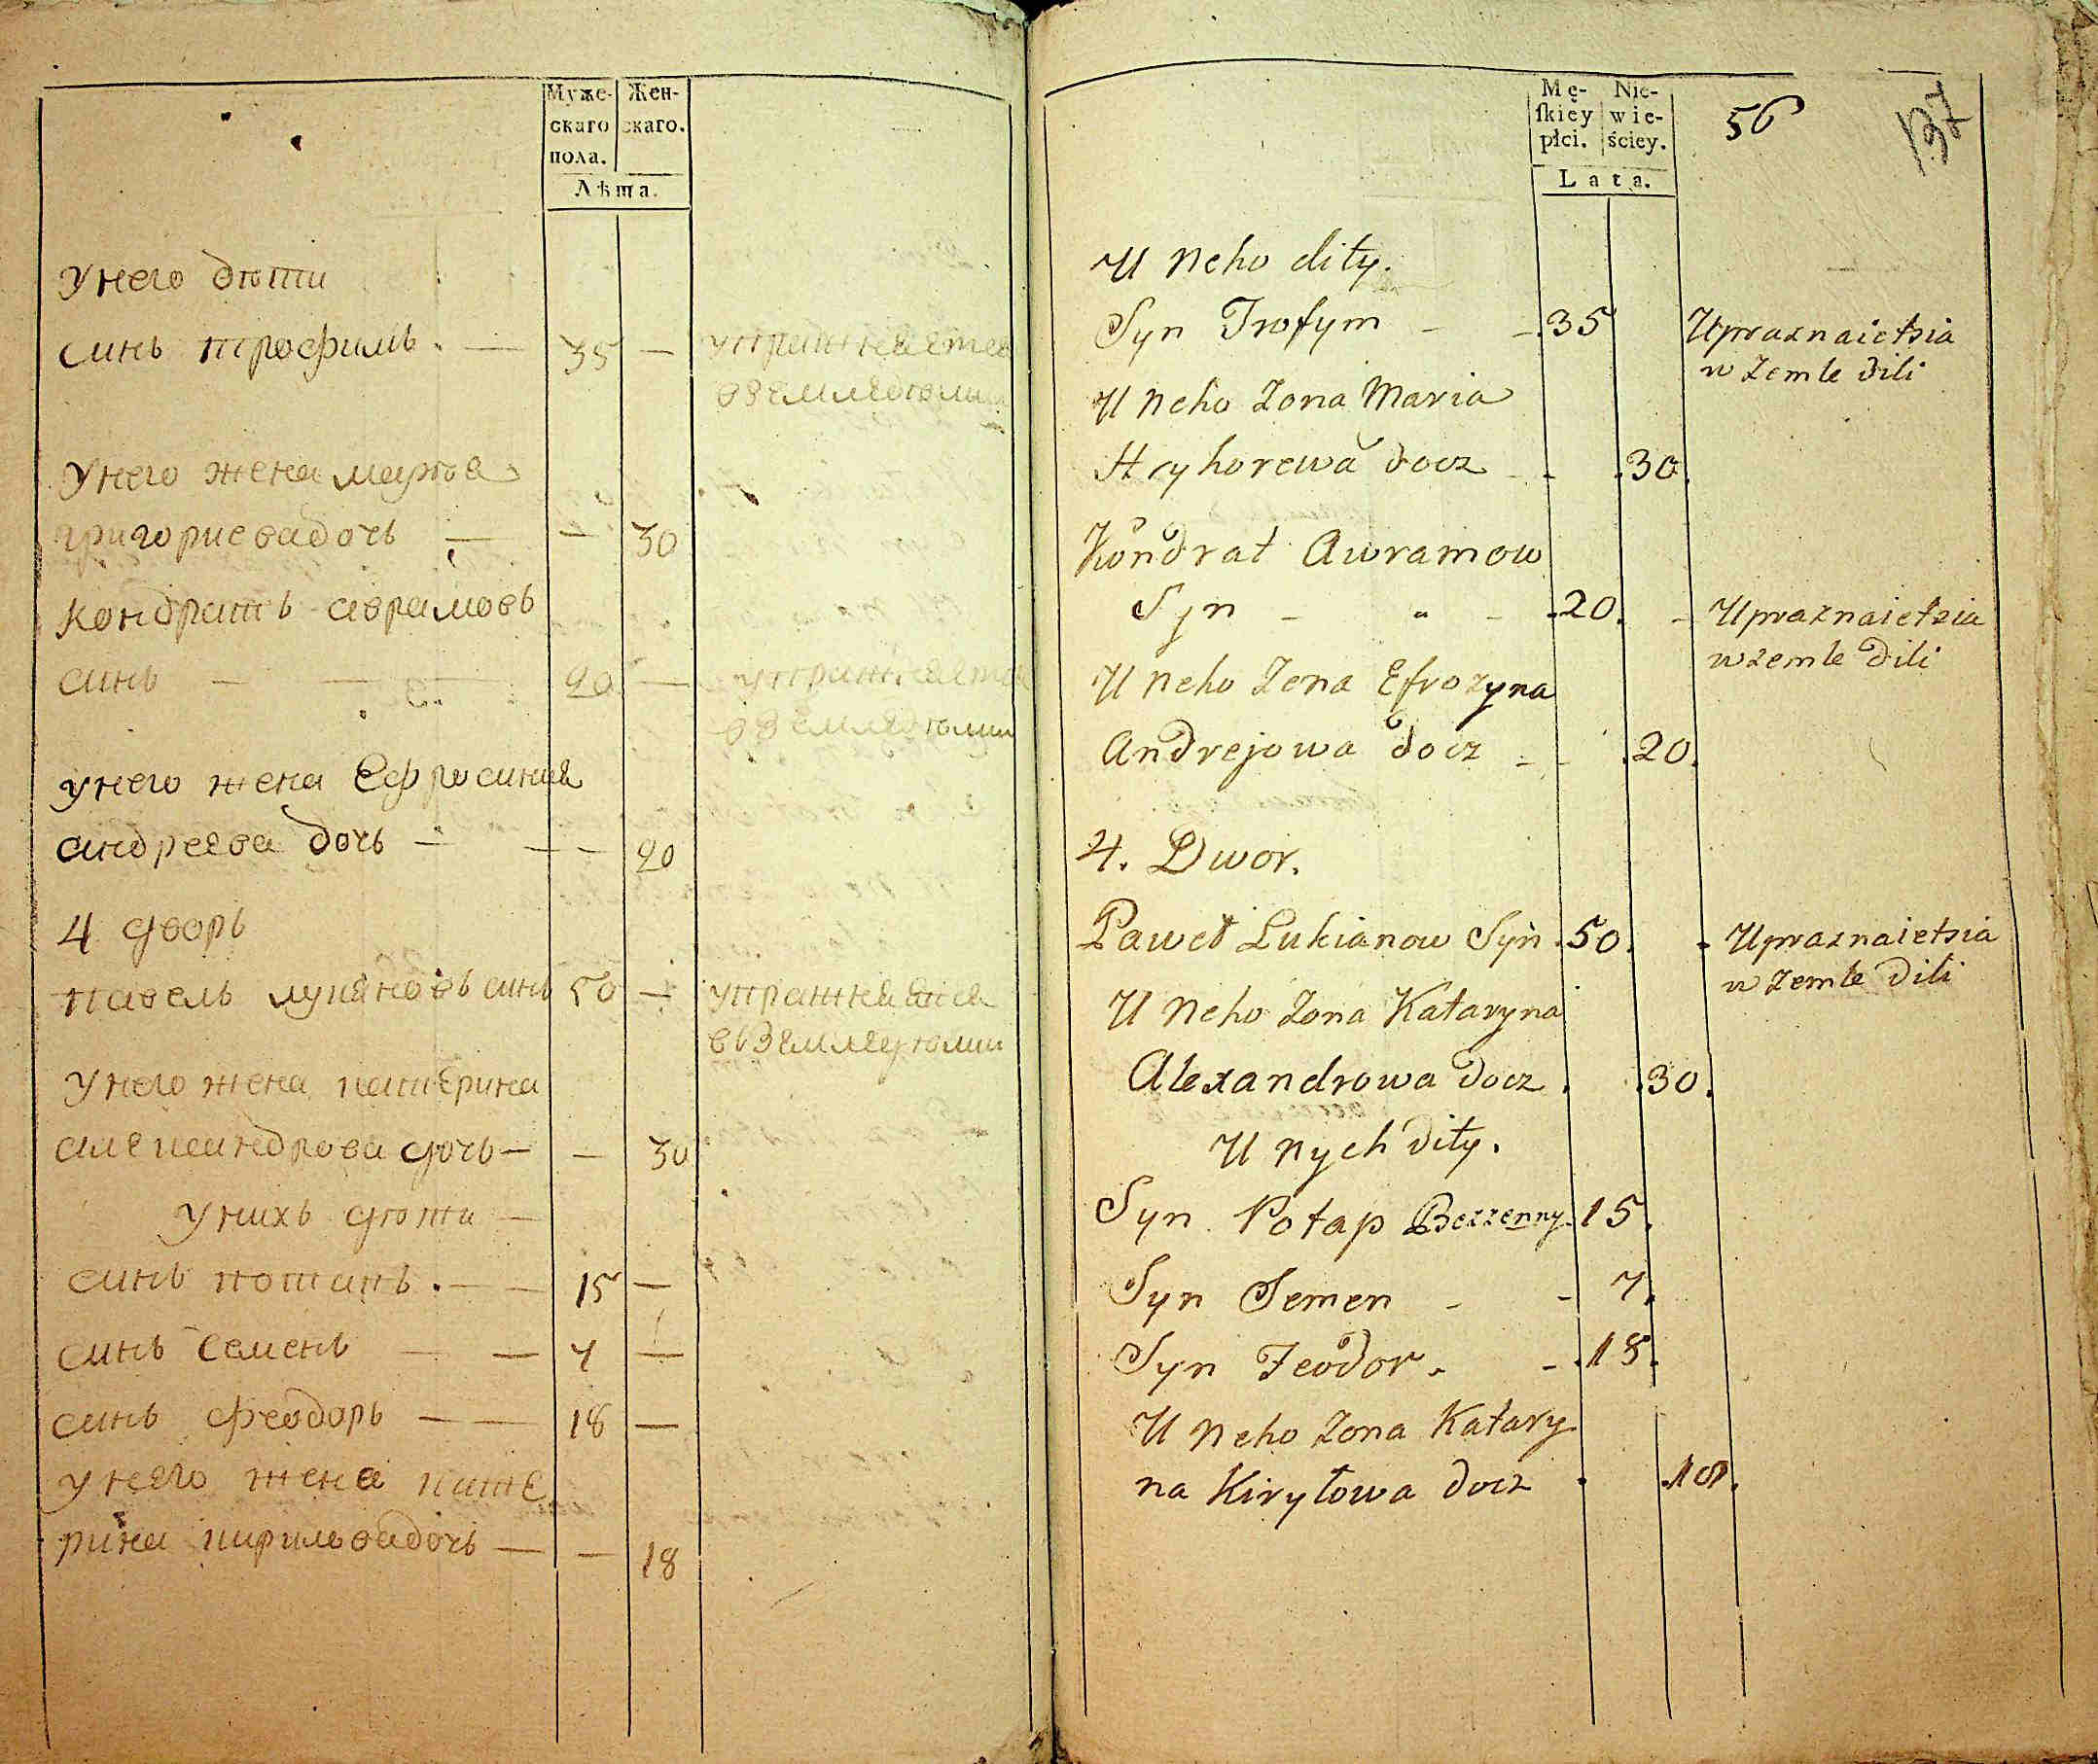 Муже-
скаго
пола.
Жен-
скаго.
Лѣта.
У него дѣти
синъ трофимъ. — 35 — упражняется
вземледѣлии
У него жена мария
григориева дочь — — 30
Кондратъ аврамовъ
синъ — — — 20 — упражняется
вземледѣлии
у него жена Ефросиния
андреева дочь — — — 20
4 дворъ
Павелъ лукяновъ синъ 50 — упражняится
въ Земледѣлии
У него жена катерина
алеѯандрова дочь — — 30
У нихъ дѣти —
синъ потапъ. — — 15 —
синъ Семенъ — — 7 —
синъ феодоръ — — 18 —
у него жена кате
рина кирилова дочь — — 18
Mę-
ſkiey
płci.
Nie-
wie-
ściey.
Lata.
56
137
U Neho dity.
Syn Trofym - - .35 Upraznaietsia
w Zemle dili
U Neho Zona Maria
Hryhorewa docz - - .30.
Kondrat Awramow
Syn - " - .20. - Upraznaietsia
w zemle dili
U Neho Zena Efrozyna
Andrejowa docz - - .20.
4. Dwor.
Paweł Lukianow Syn .50. - Upraznaietsia
w zemle dili
U Neho Zona Kataryna
Alexandrowa docz . .30.
U Nych dity.
Syn Potap Bezzenny. 15.
Syn Semen - - 7.
Syn Feodor. - .18.
U Neho Zona Katary
na Kiryłowa docz . .18.